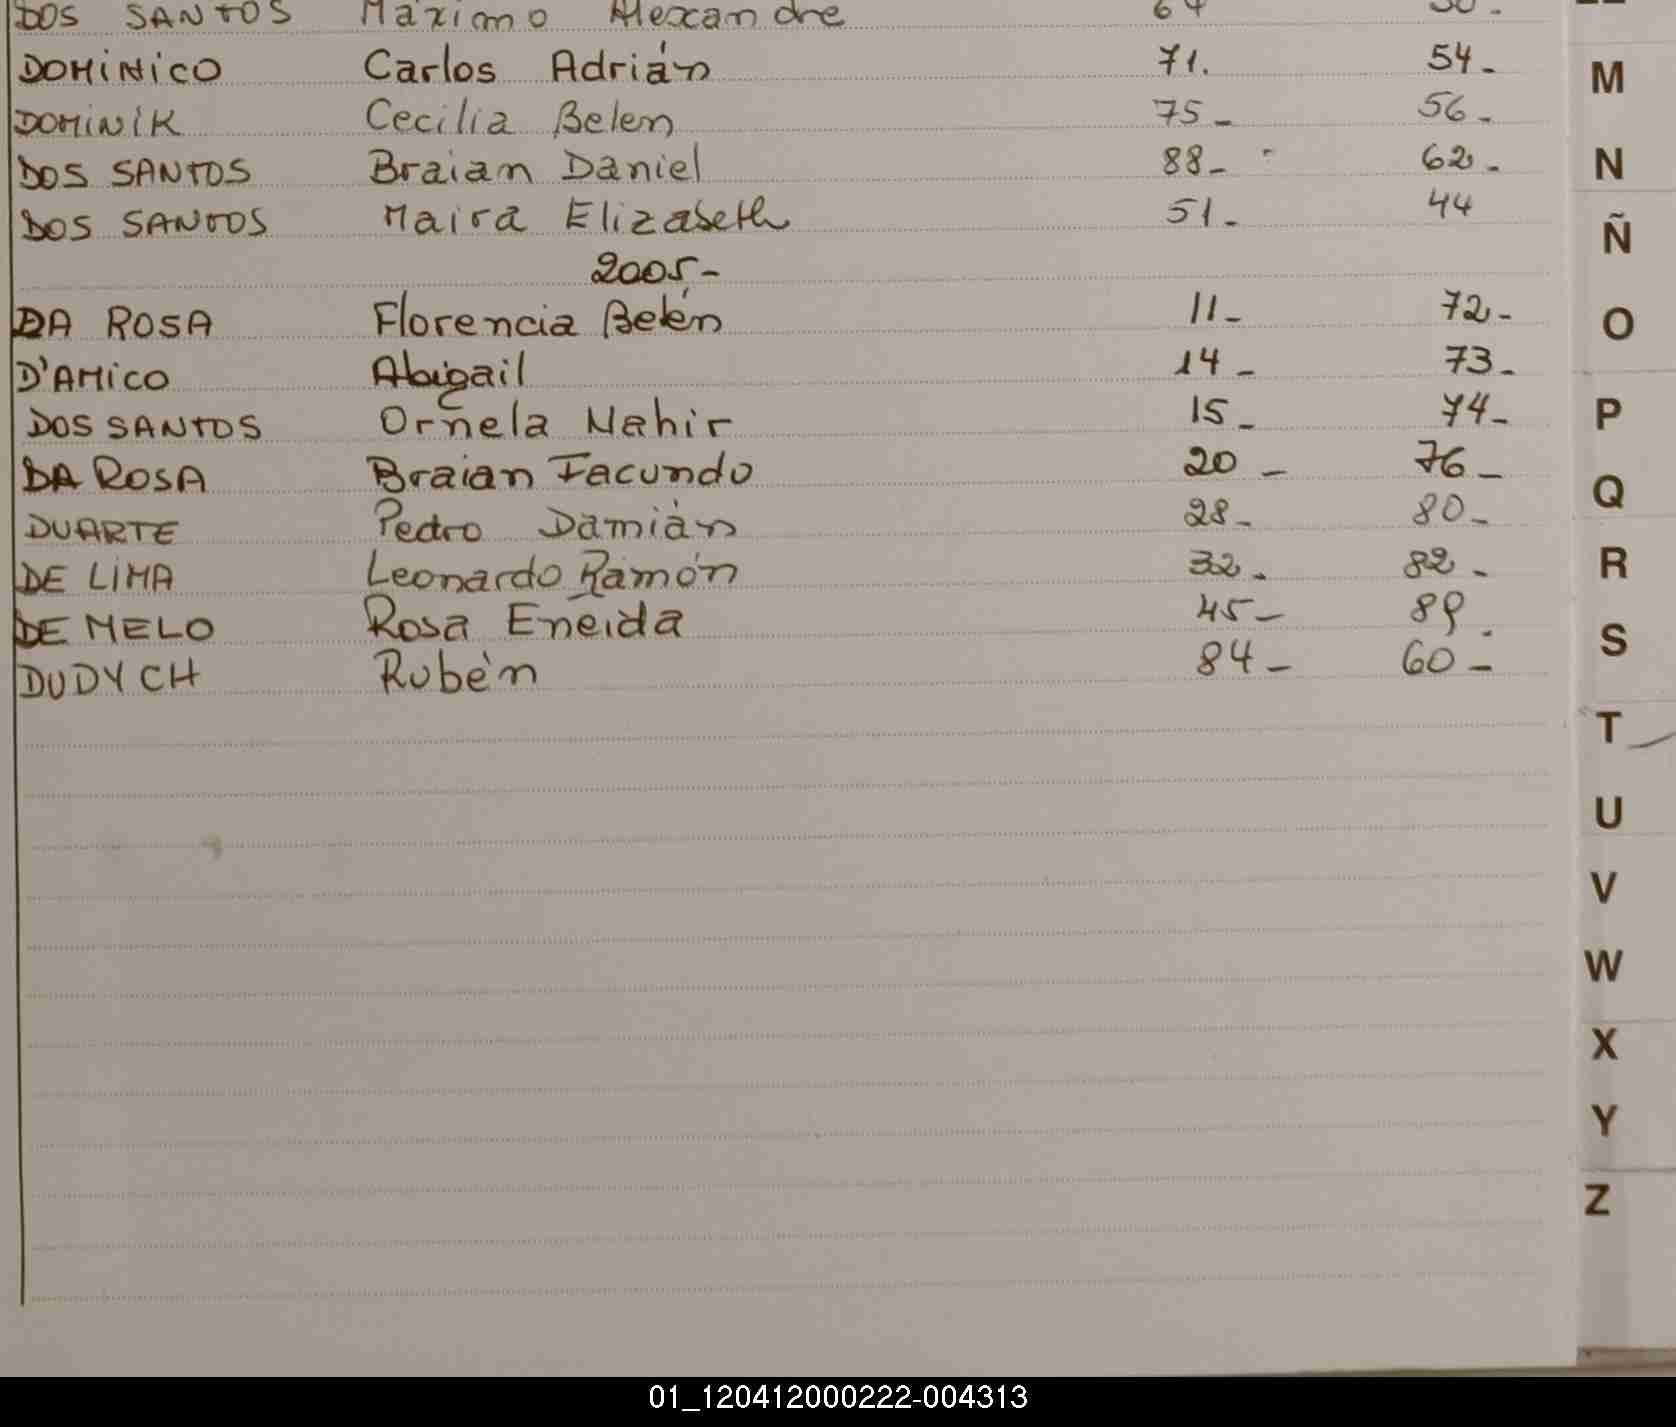 DOS SANTOS Máximo Alexandre 64 50-
DOMINICO Carlos Adrián 71. 54-
DOMINIK Cecilia Belen 75- 56-
DOS SANTOS Braian Daniel 88- 62-
DOS SANTOS Maira Elizabeth 51- 44
2005-
DA ROSA Florencia Belén 11- 72-
D'AMICO Abigail 14- 73-
DOS SANTOS Ornela Nahir 15- 74-
DA ROSA Braian Facundo 20- 76-
DUARTE Pedro Damián 28- 80-
DE LIMA Leonardo Ramón 32- 82-
DE MELO Rosa Eneida 45- 89-
DUDYCH Rubén 84- 60-
M
N
Ñ
O
P
Q
R
S
T
U
V
W
X
Y
Z
01_120412000222-004313